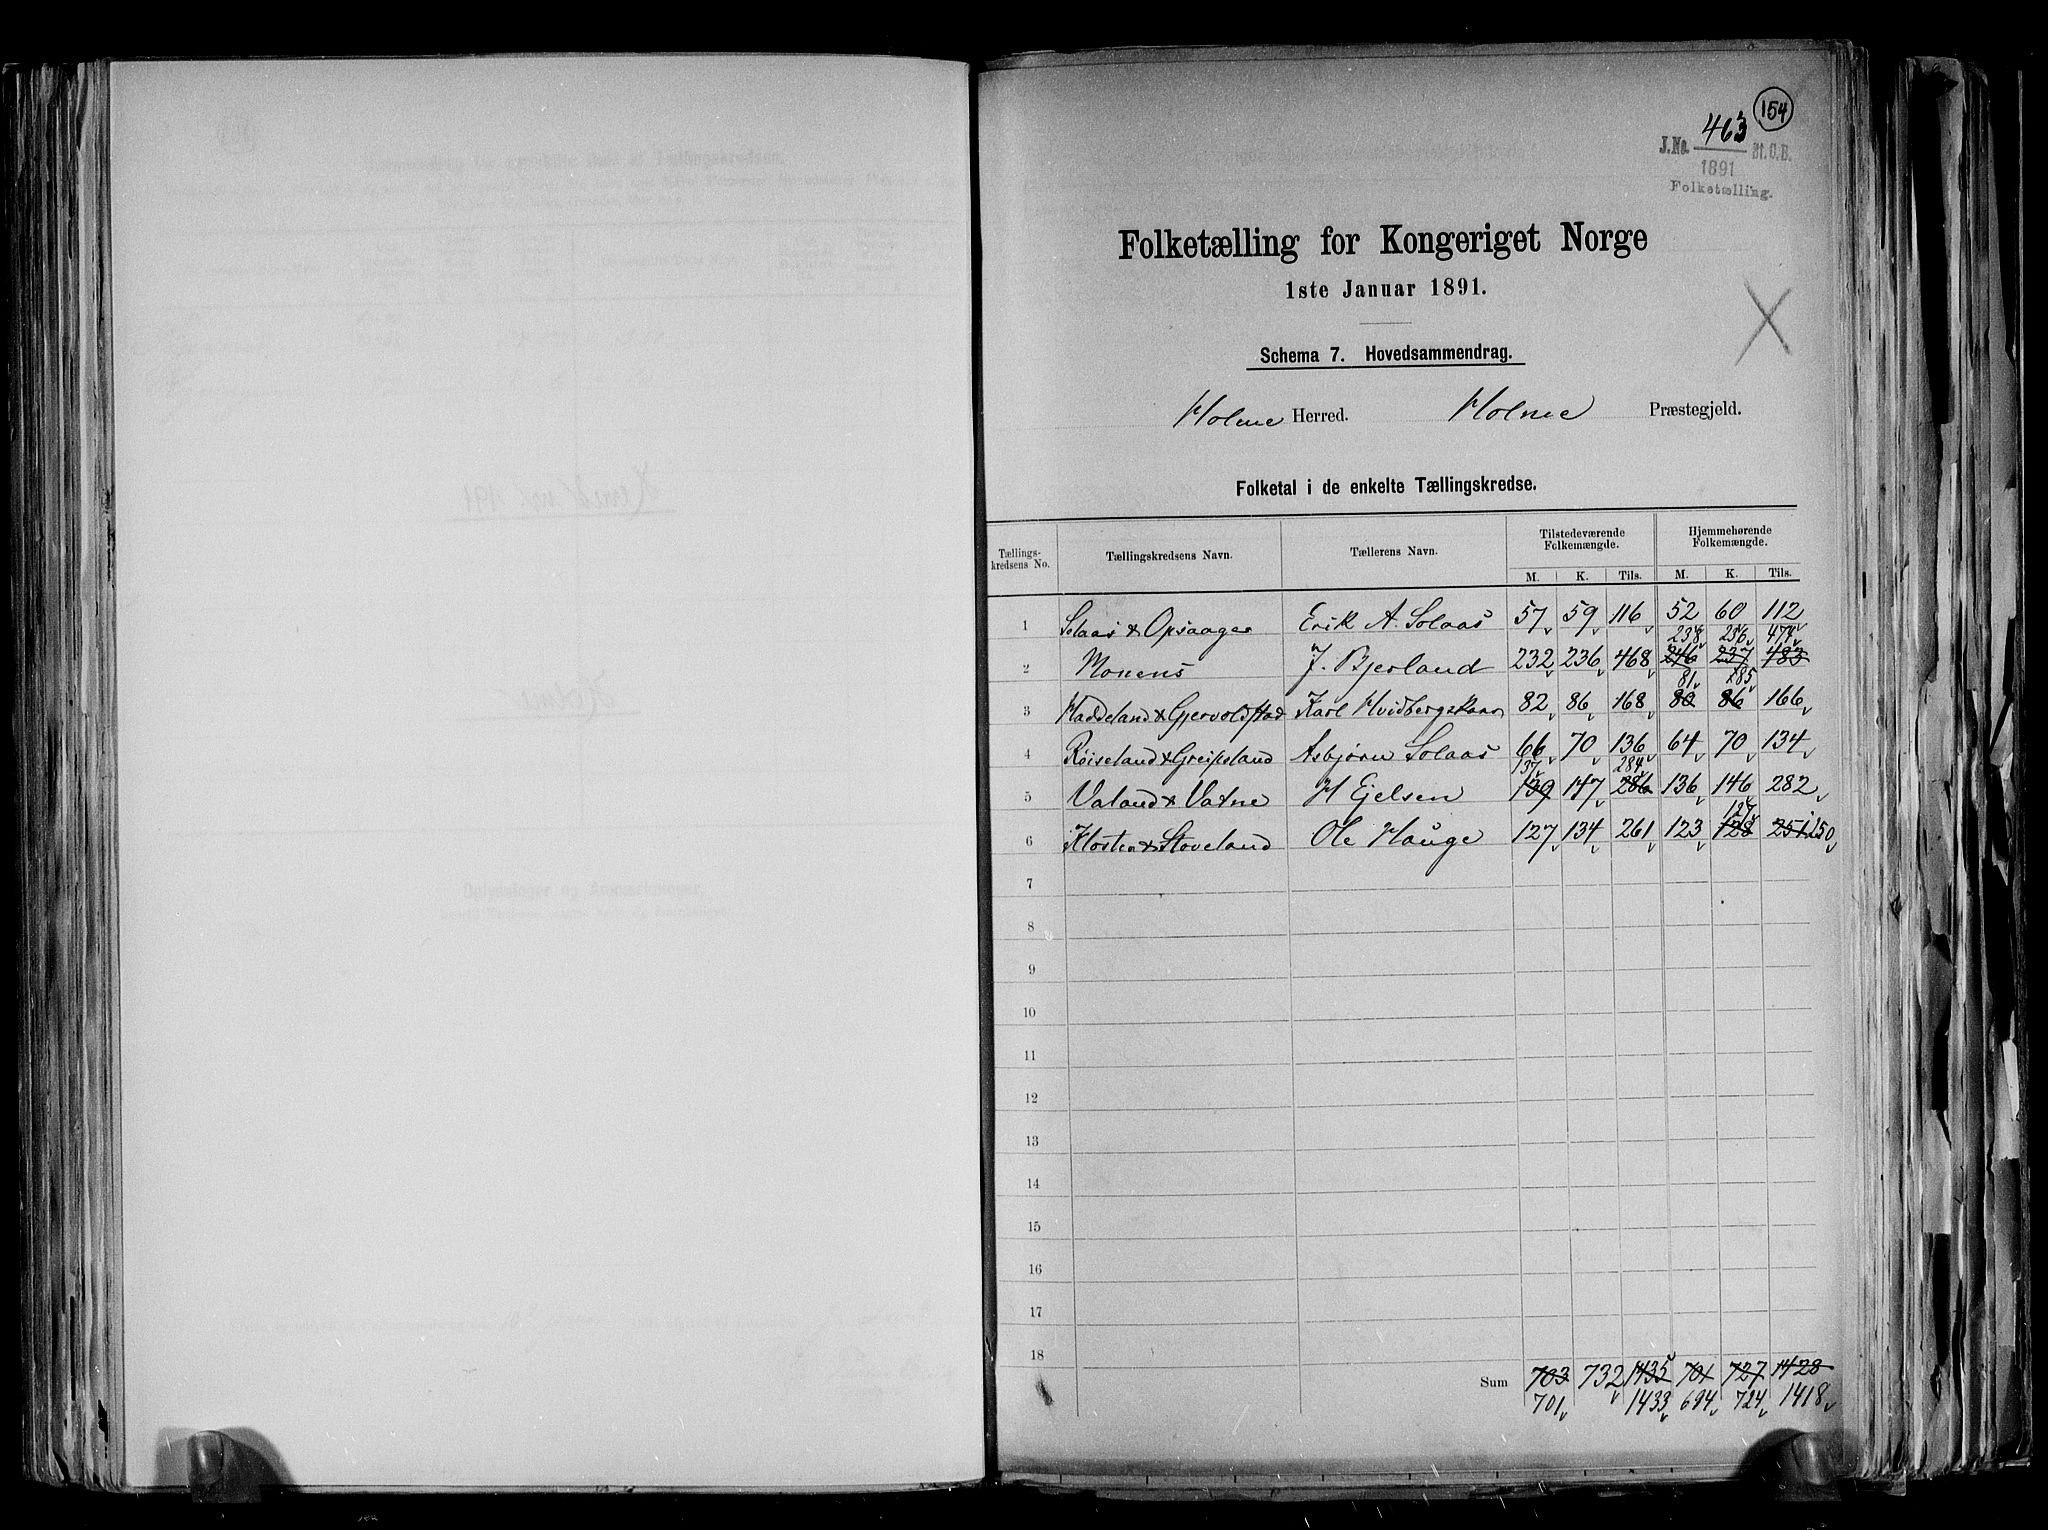 154
J.No. 463 St.C.B.
1891
Folketælling.
Folketælling for Kongeriget Norge
1ste Januar 1891.
Schema 7. Hovedsammendrag.
Holme Herred. Holme Præstegjeld.
Folketal i de enkelte Tællingskredse.
Tællings-kredsens No. Tællingskredsens Navn. Tællerens Navn. Tilstedeværende Folkemængde. Hjemmehørende Folkemængde.
M. K. Tils. M. K. Tils.
1 Solaas & Opsaager Erik A. Solaas 57 59 116 52 60 112
238 236 474
2 Monens J. Bjerland 232 236 468 246 237 483
81 85
3 Haddeland & Gjervoldstad Karl Hvidbergskaar 82 86 168 80 86 166
4 Röiseland & Greipsland Asbjørn Solaas 66 70 136 64 70 134
137 284
5 Valand & Vatne H Ejelsen 139 147 286 136 146 282
127
6 Kloster & Stoveland Ole Hauge 127 134 261 123 128 251 250
7
8
9
10
11
12
13
14
15
16
17
18
Sum 703 732 1435 701 727 1428
701 1433 694 724 1418